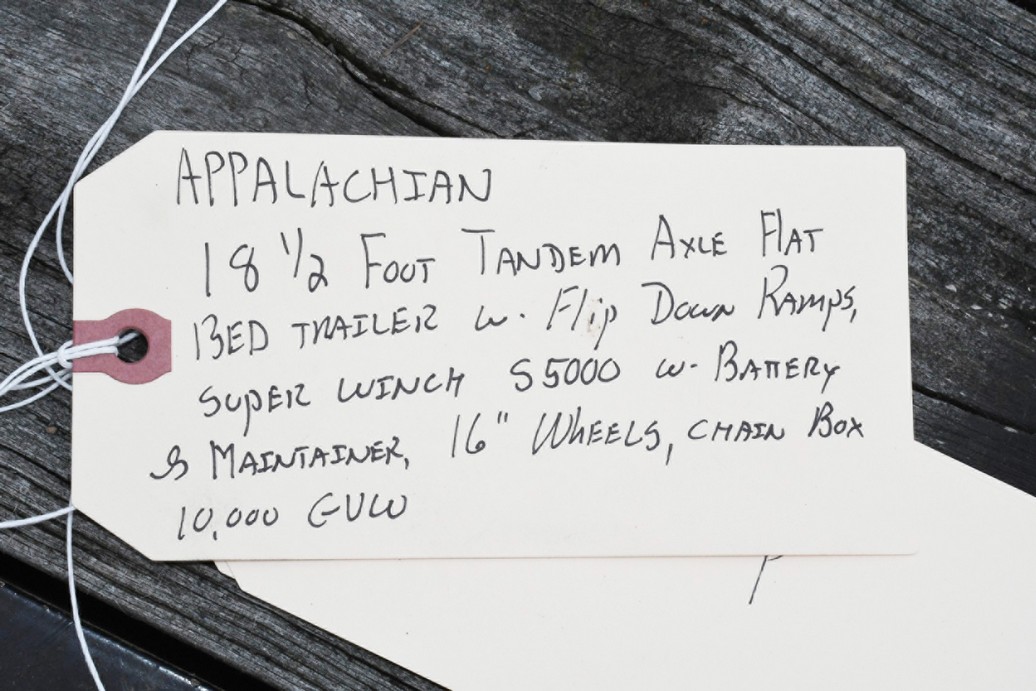 APPALACHIAN
18 1/2 FOOT TANDEM AXLE FLAT
BED TRAILER w. Flip DOWN RAMPS,
SUPER WINCH S5000 w. BATTERY
& MAINTAINER, 16" WHEELS, CHAIN BOX
10,000 GVW